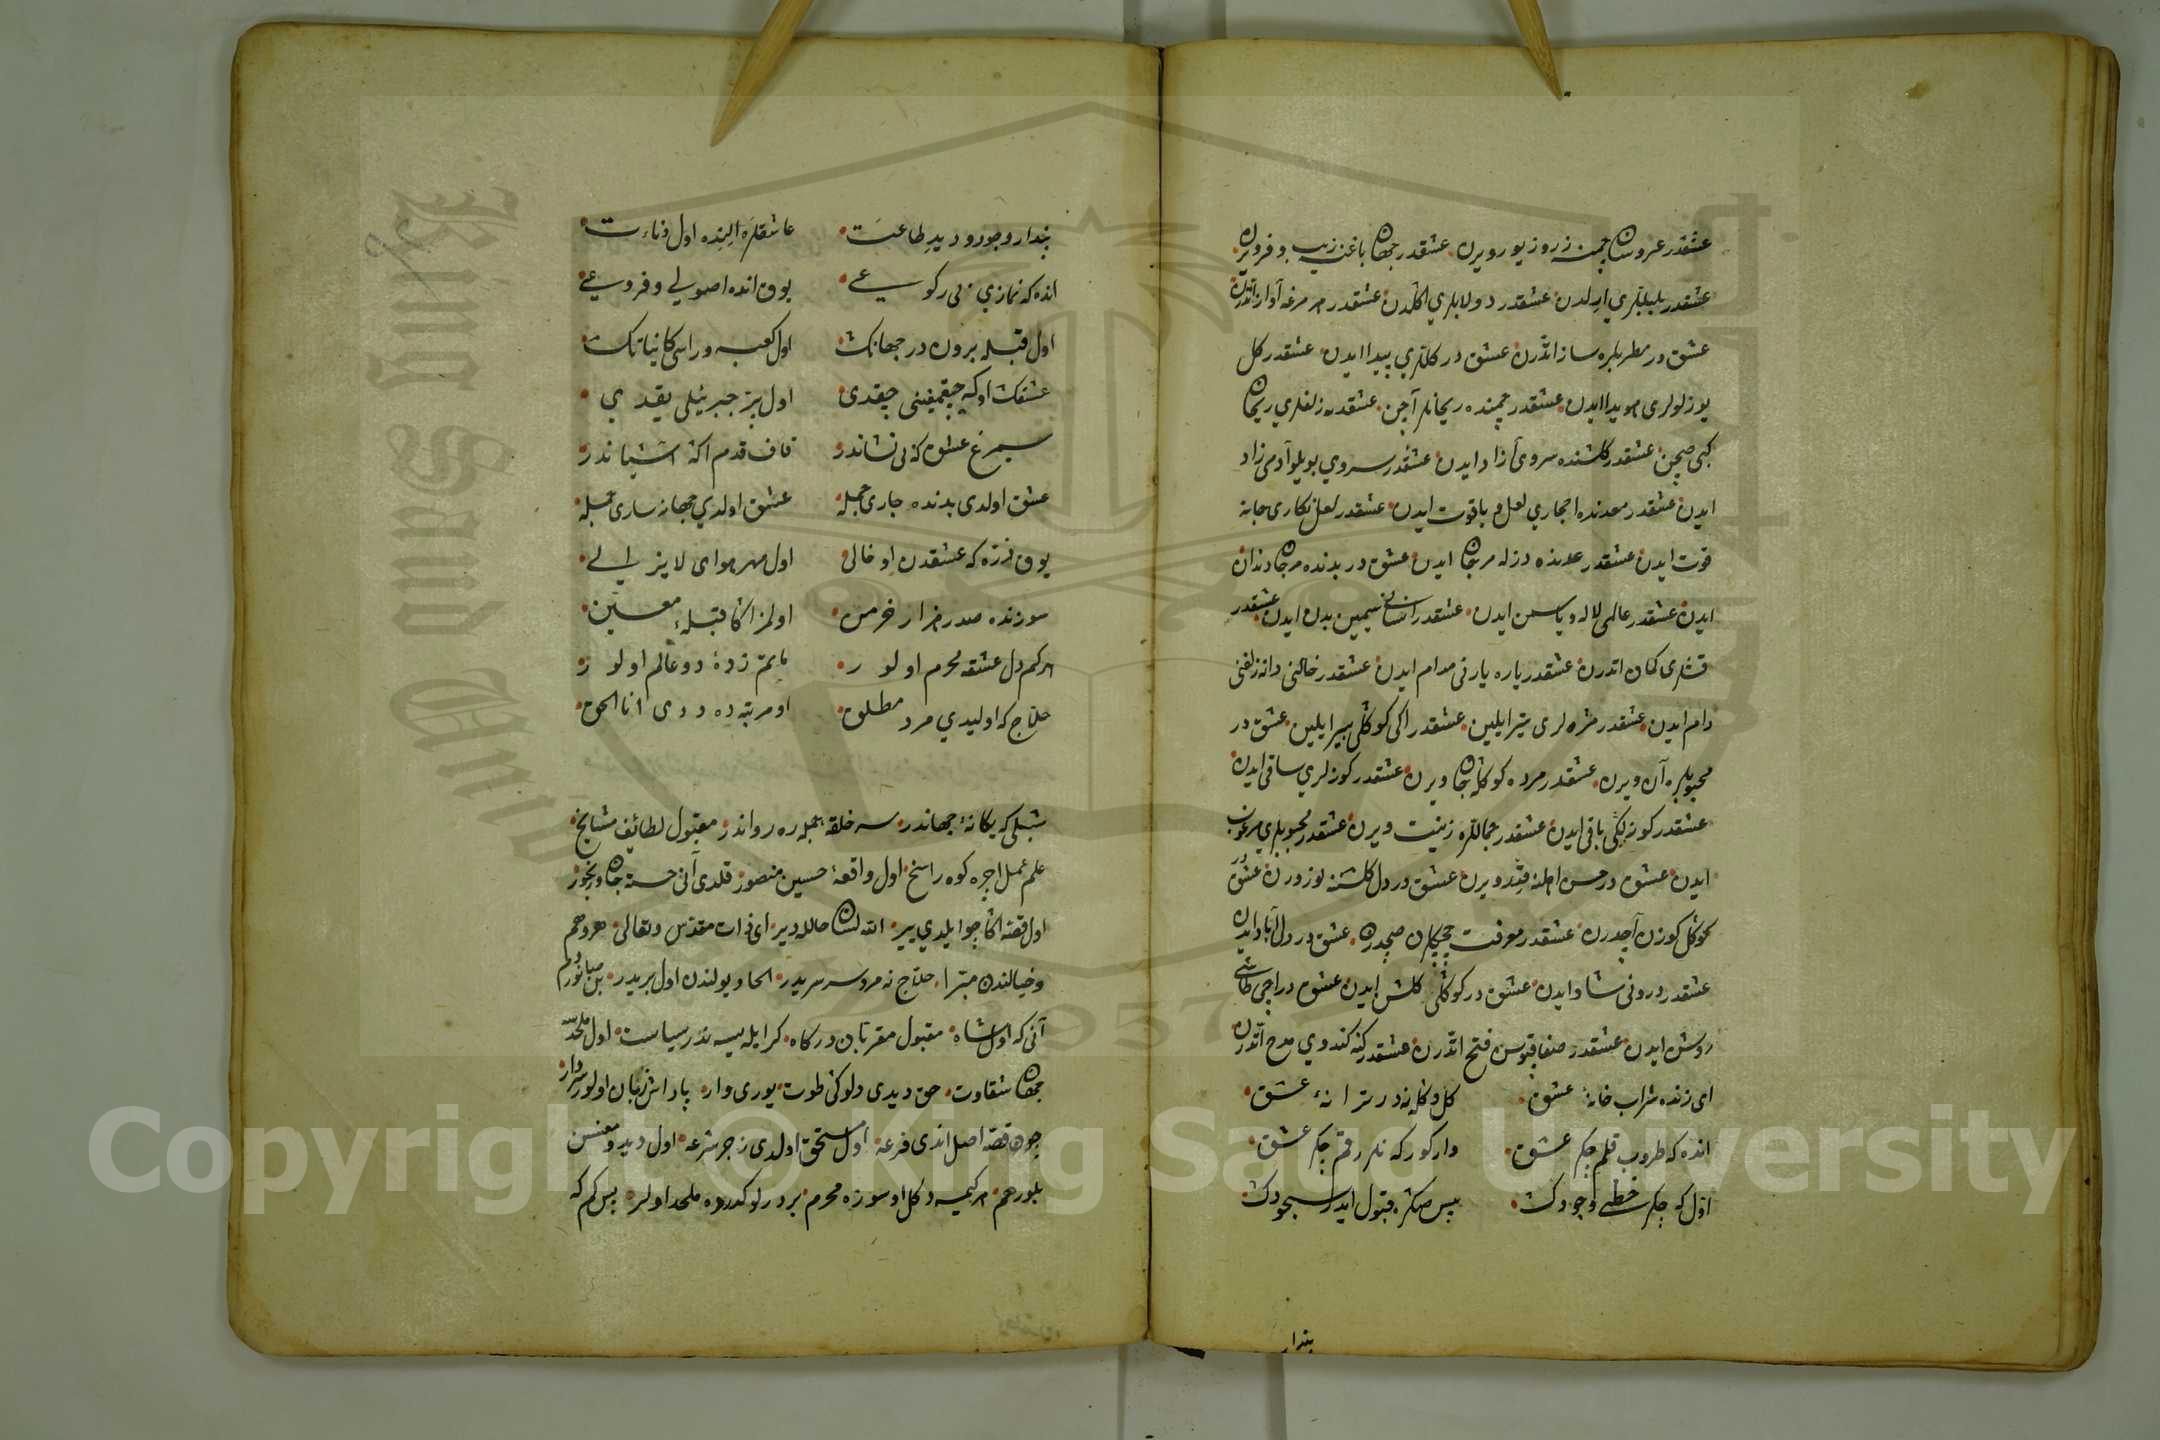 عشقدر عروسان چمنه زر و زیور ویرن عشقدر جهان باغنه زیب و فر ویرن
عشقدر بلبللری ایرلدن عشقدر دولابلری اکلدن عشقدر هر مرغه آواز ایتدرن
عشق در مطربلره ساز اتدرن عشق در کللری پیدا ایدن عشقدر کل
یوزلولری هویدا ایدن عشقدر چمنده ریحانلر آچن عشقدر زلفلری ریحان
کبی صچن عشقدر کلشنده سروی آزاد ایدن عشقدر سروی بویلو آدمی زاد
ایدن عشقدر معدنده احجاری لعل و یاقوت ایدن عشقدر لعل نکاری جانه
قوت ایدن عشقدر عدنده دزله مرجان ایدن عشق در بدنده مرجان دندان
ایدن عشقدر عالمی لاله و یاسمن ایدن عشقدر انسانی سیمین بدن ایدن عشقدر
قشلری کمان اتدرن عشقدر یاره یارنی مدام ایدن عشقدر خالنی دانه زلفنی
دام ایدن عشقدر مژه لری تیر ایلین عشقدر اکی کوکلی بیر ایلین عشق در
محبوبلره آن ویرن عشقدر مرده کوکله جان ویرن عشقدر کوزلری ساقی ایدن
عشقدر کوزللکی باقی ایدن عشقدر جماللره زینت ویرن عشقدر محبوبلری مرغوب
ایدن عشق در حسن اهلنه قیمت ویرن عشق در دل کلشننه نوز ویرن عشق در
کوکل کوزن آچدرن عشقدر معرفت چیچکلرن صچدرن عشق در دل آباد ایدن
عشقدر درونی شاد ایدن عشق در کوکلی کلشن ایدن عشق در ایچی طاشی
روشن ایدن عشقدر صفا قپوسن فتح اتدرن عشقدر کنه کندوی مدح اتدرن
ای زنده شراب خانهٔ عشق کل دکله نه در ترانهٔ عشق
انده که طروب قلم چکر عشق وار کور که نلر رقم چکر عشق
اول که چکر سه خطی وجودک پس صکره قبول ایدر سجودک
پندا
پندار وجود و دید طاعت عاشقلره الینده اول دناءت
انده که نمازی بی رکوعی یوق انده اصولی و فروعی
اول قبله برون در جهانک اول کعبه وراسی کائناتک
عشقک اوکه چقمغنی چقدی اول پر جبرئلی یقدی
سیمرغ عشق که بی نشاندر قاف قدم اکا اشیاندر
عشق اولدی بدنده جاری جمله عشق اولدی جهانه ساری جمله
یوق ذره که عشقدن او خالی اول مهر هوای لایزالی
سوزنده صدر هزار خرمن اولمز اکا قبلهٔ معین
هر کم دل عشقه محرم اولور ماتم زدهٔ دو عالم اولور
حلاج که اولیدی مرد مطلق او مرتبه ده ددی انا الحق
شبلی که یکانهٔ جهاندر سه خلقه جمله ره رواندر مقبول لطائف مشایخ
علم عمل اجره کوه راسخ اول واقعهٔ حسین منصور قلدی آنی خسته جان و رنجور
اول قصه اکا جو ایلدی پیر الله لسان حالله دیر ای ذات مقدس و تعالی هر وهم
و خیالندن مبرا حلاج نه مرد سر سریدر الحاد یولندن اول بریدر بن صانوردم
آنی که اول شاه مقبول مقربان درکاه کر ایله یسه نذر سیاست اول ملحد
جهان شقاوت حق دیدی دلوکی طوت یوری وار پاداش زبان اولور سردار
چون قصه اصل اندی فرعه اول مستحق اولدی زجر شرعه اول دید و معنسن
بلورهم هر کیمسه دکل او سوزه محرم بردر لو کدرده ملحد اولر پس کم که